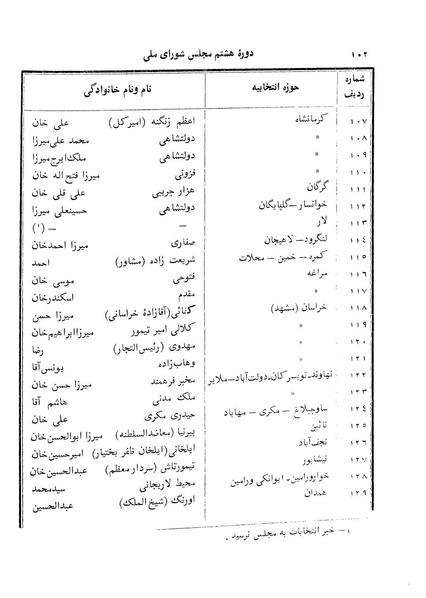 ۱۰۲ دورهٔ هشتم مجلس شورای ملی
شماره ردیف حوزه انتخابیه نام ونام خانوادگی
۱۰۷ کرمانشاه اعظم زنگنه (امیرکل) علی خان
۱۰۸ » دولتشاهی محمد علی میرزا
۱۰۹ » دولتشاهی ملک ایرج میرزا
۱۱۰ » قزونی میرزا فتح اله خان
۱۱۱ گرگان هزار جریبی علی قلی خان
۱۱۲ خوانسار – گلپایگان دولتشاهی حسینعلی میرزا
۱۱۳ لار – – (۱)
۱۱٤ لنگرود – لاهیجان صفاری میرزا احمدخان
۱۱۵ کمره – خمین – محلات شریعت زاده (مشاور) احمد
۱۱۶ مراغه فتوحی موسی خان
۱۱۷ » مقدم اسکندرخان
۱۱۸ خراسان (مشهد) (آقازاده خراسانی) میرزا حسن
۱۱۹ » کلالی امیر تیمور میرزا ابراهیم خان
۱۲۰ » مهدوی (رئیس التجار) رضا
۱۲۱ » وهاب زاده یونس آقا
۱۲۲ نهاوند – تویسرکان – دولت آباد – ملایر مخبر فرهمند میرزا حسن خان
۱۲۳ » ملک مدنی هاشم آقا
۱۲٤ ساوجبلاغ – مکری – مهاباد حیدری مکری علی خان
۱۲۵ نائین پیرنیا (معاضدالسلطنه) میرزا ابوالحسن خان
۱۲۶ نجف آباد ایلخانی (ایلخان ظفر بختیار) امیرحسین خان
۱۲۷ نیشابور تیمورتاش (سردار معظم) عبدالحسین خان
۱۲۸ خوارورامین – ایوانکی ورامین محیط لاریجانی سیدمحمد
۱۲۹ همدان اورنگ (شیخ الملک) عبدالحسین
۱ – خبر انتخابات به مجلس نرسید .